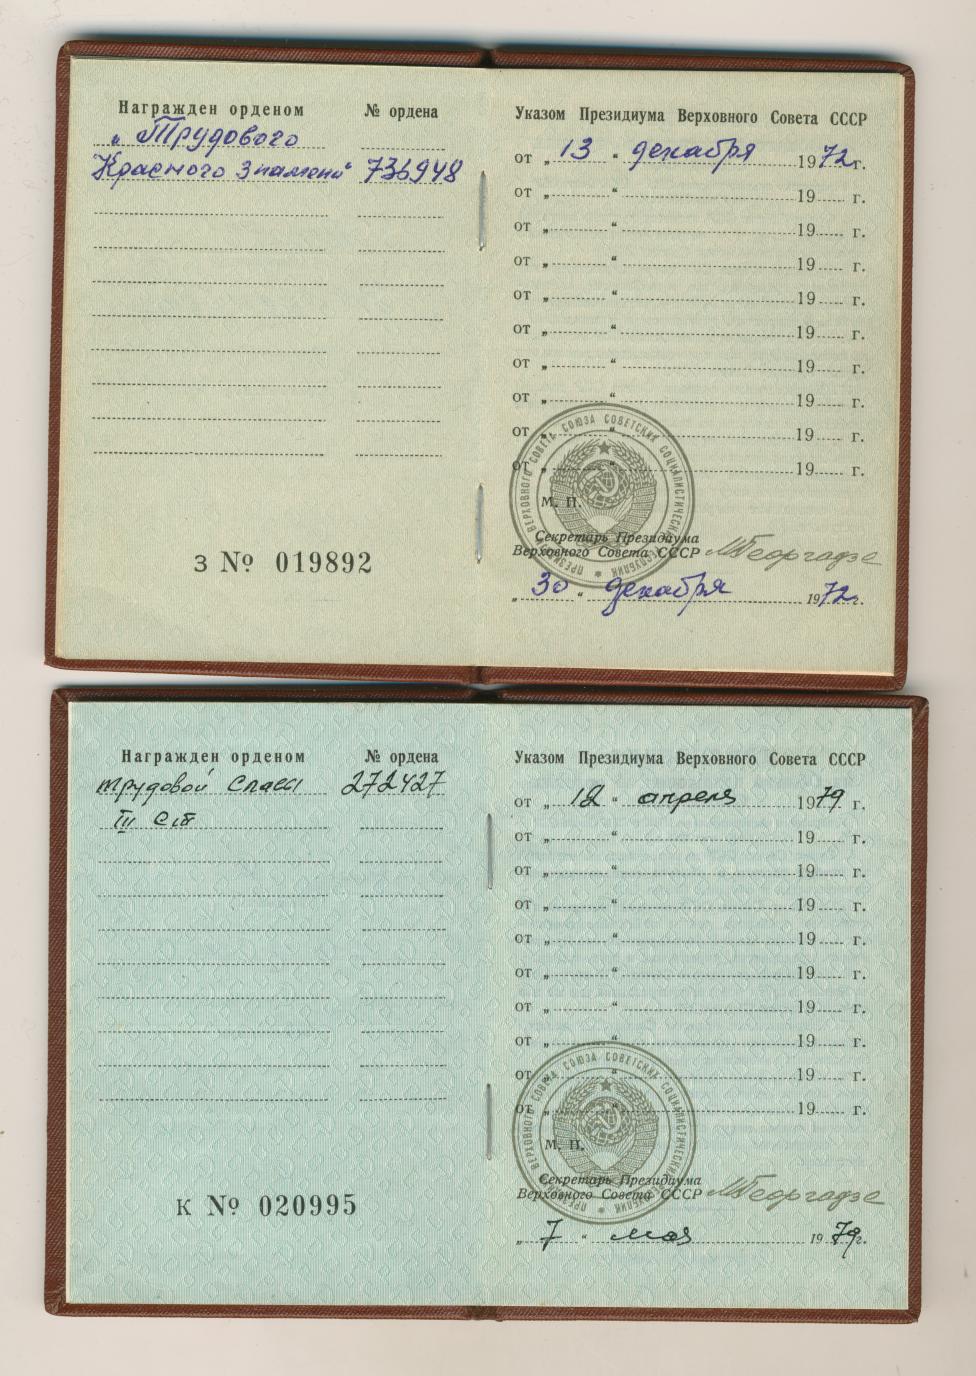 Награжден орденом № ордена
„Трудового
Красного Знамени" 736948
З № 019892
Указом Президиума Верховного Совета СССР
от „ 13 “ декабря 1972 г.
от „ “ 19 г.
от „ “ 19 г.
от „ “ 19 г.
от „ “ 19 г.
от „ “ 19 г.
от „ “ 19 г.
от „ “ 19 г.
от „ “ 19 г.
от „ “ 19 г.
ПРЕЗИДИУМ ВЕРХОВНОГО СОВЕТА СОЮЗА СОВЕТСКИХ СОЦИАЛИСТИЧЕСКИХ РЕСПУБЛИК
М. П.
Секретарь Президиума
Верховного Совета СССР МГеоргадзе
„ 30 “ декабря 1972 г.
Награжден орденом № ордена
трудовой Славы 272427
III ст
К № 020995
Указом Президиума Верховного Совета СССР
от „ 12 “ апреля 1979 г.
от „ “ 19 г.
от „ “ 19 г.
от „ “ 19 г.
от „ “ 19 г.
от „ “ 19 г.
от „ “ 19 г.
от „ “ 19 г.
от „ “ 19 г.
от „ “ 19 г.
ПРЕЗИДИУМ ВЕРХОВНОГО СОВЕТА СОЮЗА СОВЕТСКИХ СОЦИАЛИСТИЧЕСКИХ РЕСПУБЛИК
М. П.
Секретарь Президиума
Верховного Совета СССР МГеоргадзе
„ 7 “ мая 1979 г.